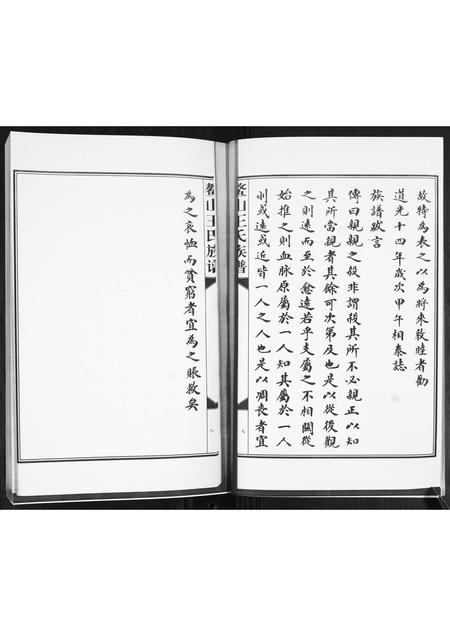 故特為表之以為將來敦睦者勸
道光十四年歲次甲午相泰誌
族譜跋言
傳曰親親之殺非謂殺其所不必親正以知
其所當親者其餘可次第及也是以從後觀
之則遠而至於愈遠若乎支屬之不相關從
始推之則血脉原屬於一人知其屬於一人
則或遠或近皆一人之人也是以凋喪者宜
鳌山王氏族譜
七
鳌山王氏族谱
八
為之哀恤而貧窮者宜為之賑救矣